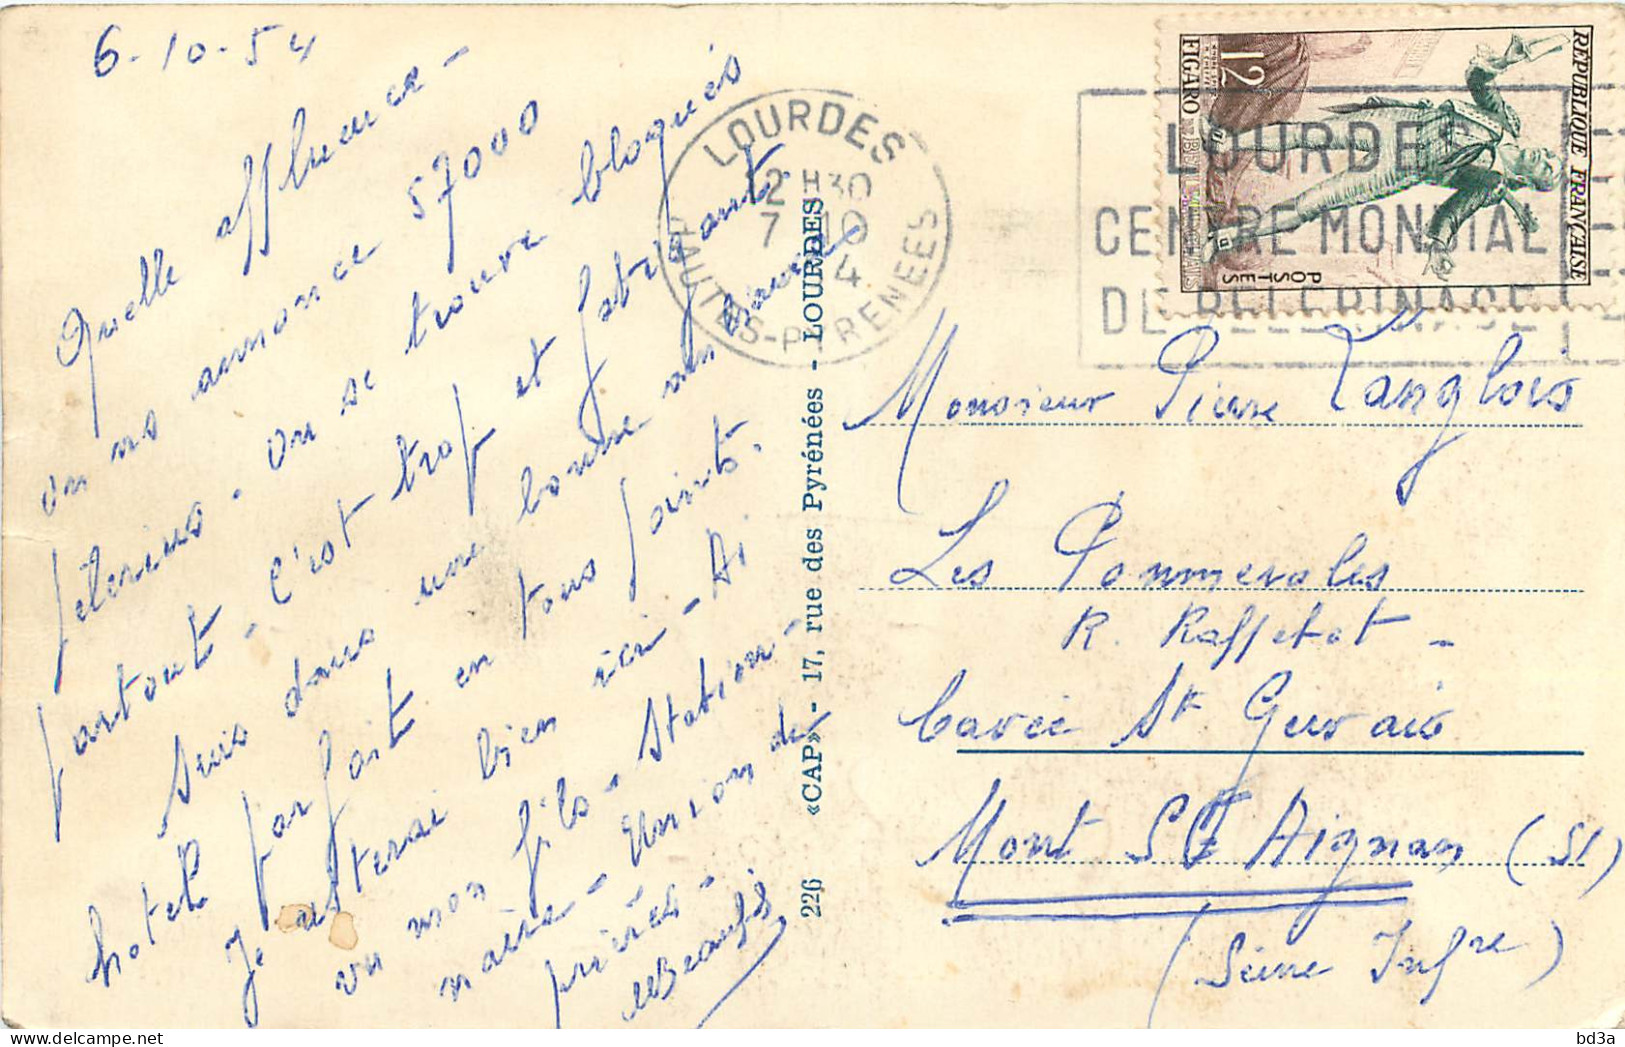 6-10-54
Quelle affluence -
on ns annonce 57000
pélerins - on se trouve bloqués
partout - c'est trop et fatigant
Suis dans une bonne
hotel parfait en tous points.
Je resterai bien ici - Ai
vu mon fils - Station-
naire - Union de
prières -
226 «CAP» - 17, rue des Pyrénées - LOURDES
LOURDES
12 H30
7 10
4
HAUTES-PYRENEES
LOURDES
CENTRE MONDIAL
DE PELERINAGE
REPUBLIQUE FRANÇAISE
POSTES
12F
FIGARO
Monsieur Pierre Langlois
Les Pommeroles
R. Raffetot -
Cavée St Gervais
Mont St Aignan (SI)
(Seine Infre)
bd3a